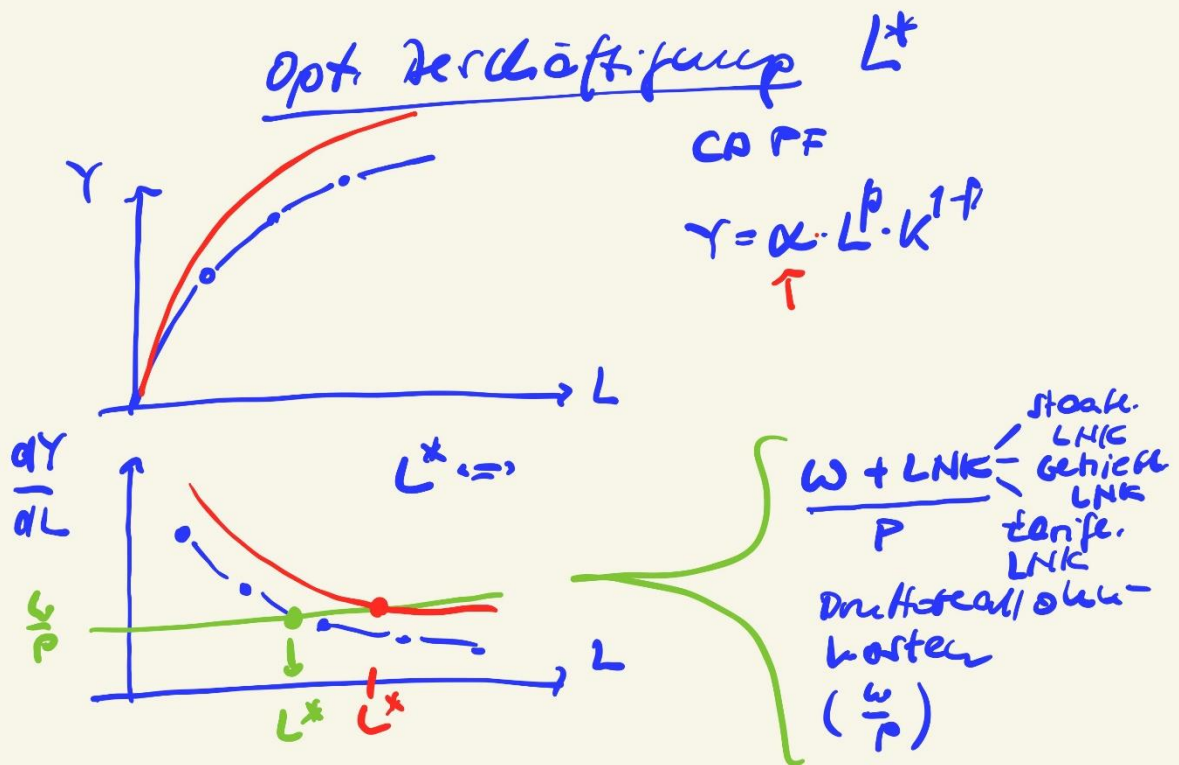 Opt. Beschäftigung L*
CD PF
Y
Y = α · L^β · K^1-β
↑
L
dY
dL
L* <=>
w
P
L
L*
L*
w + LNK
P
staatl.
LNK
betriebl.
LNK
tarifl.
LNK
Bruttoreallohn-
kosten
(w/P)